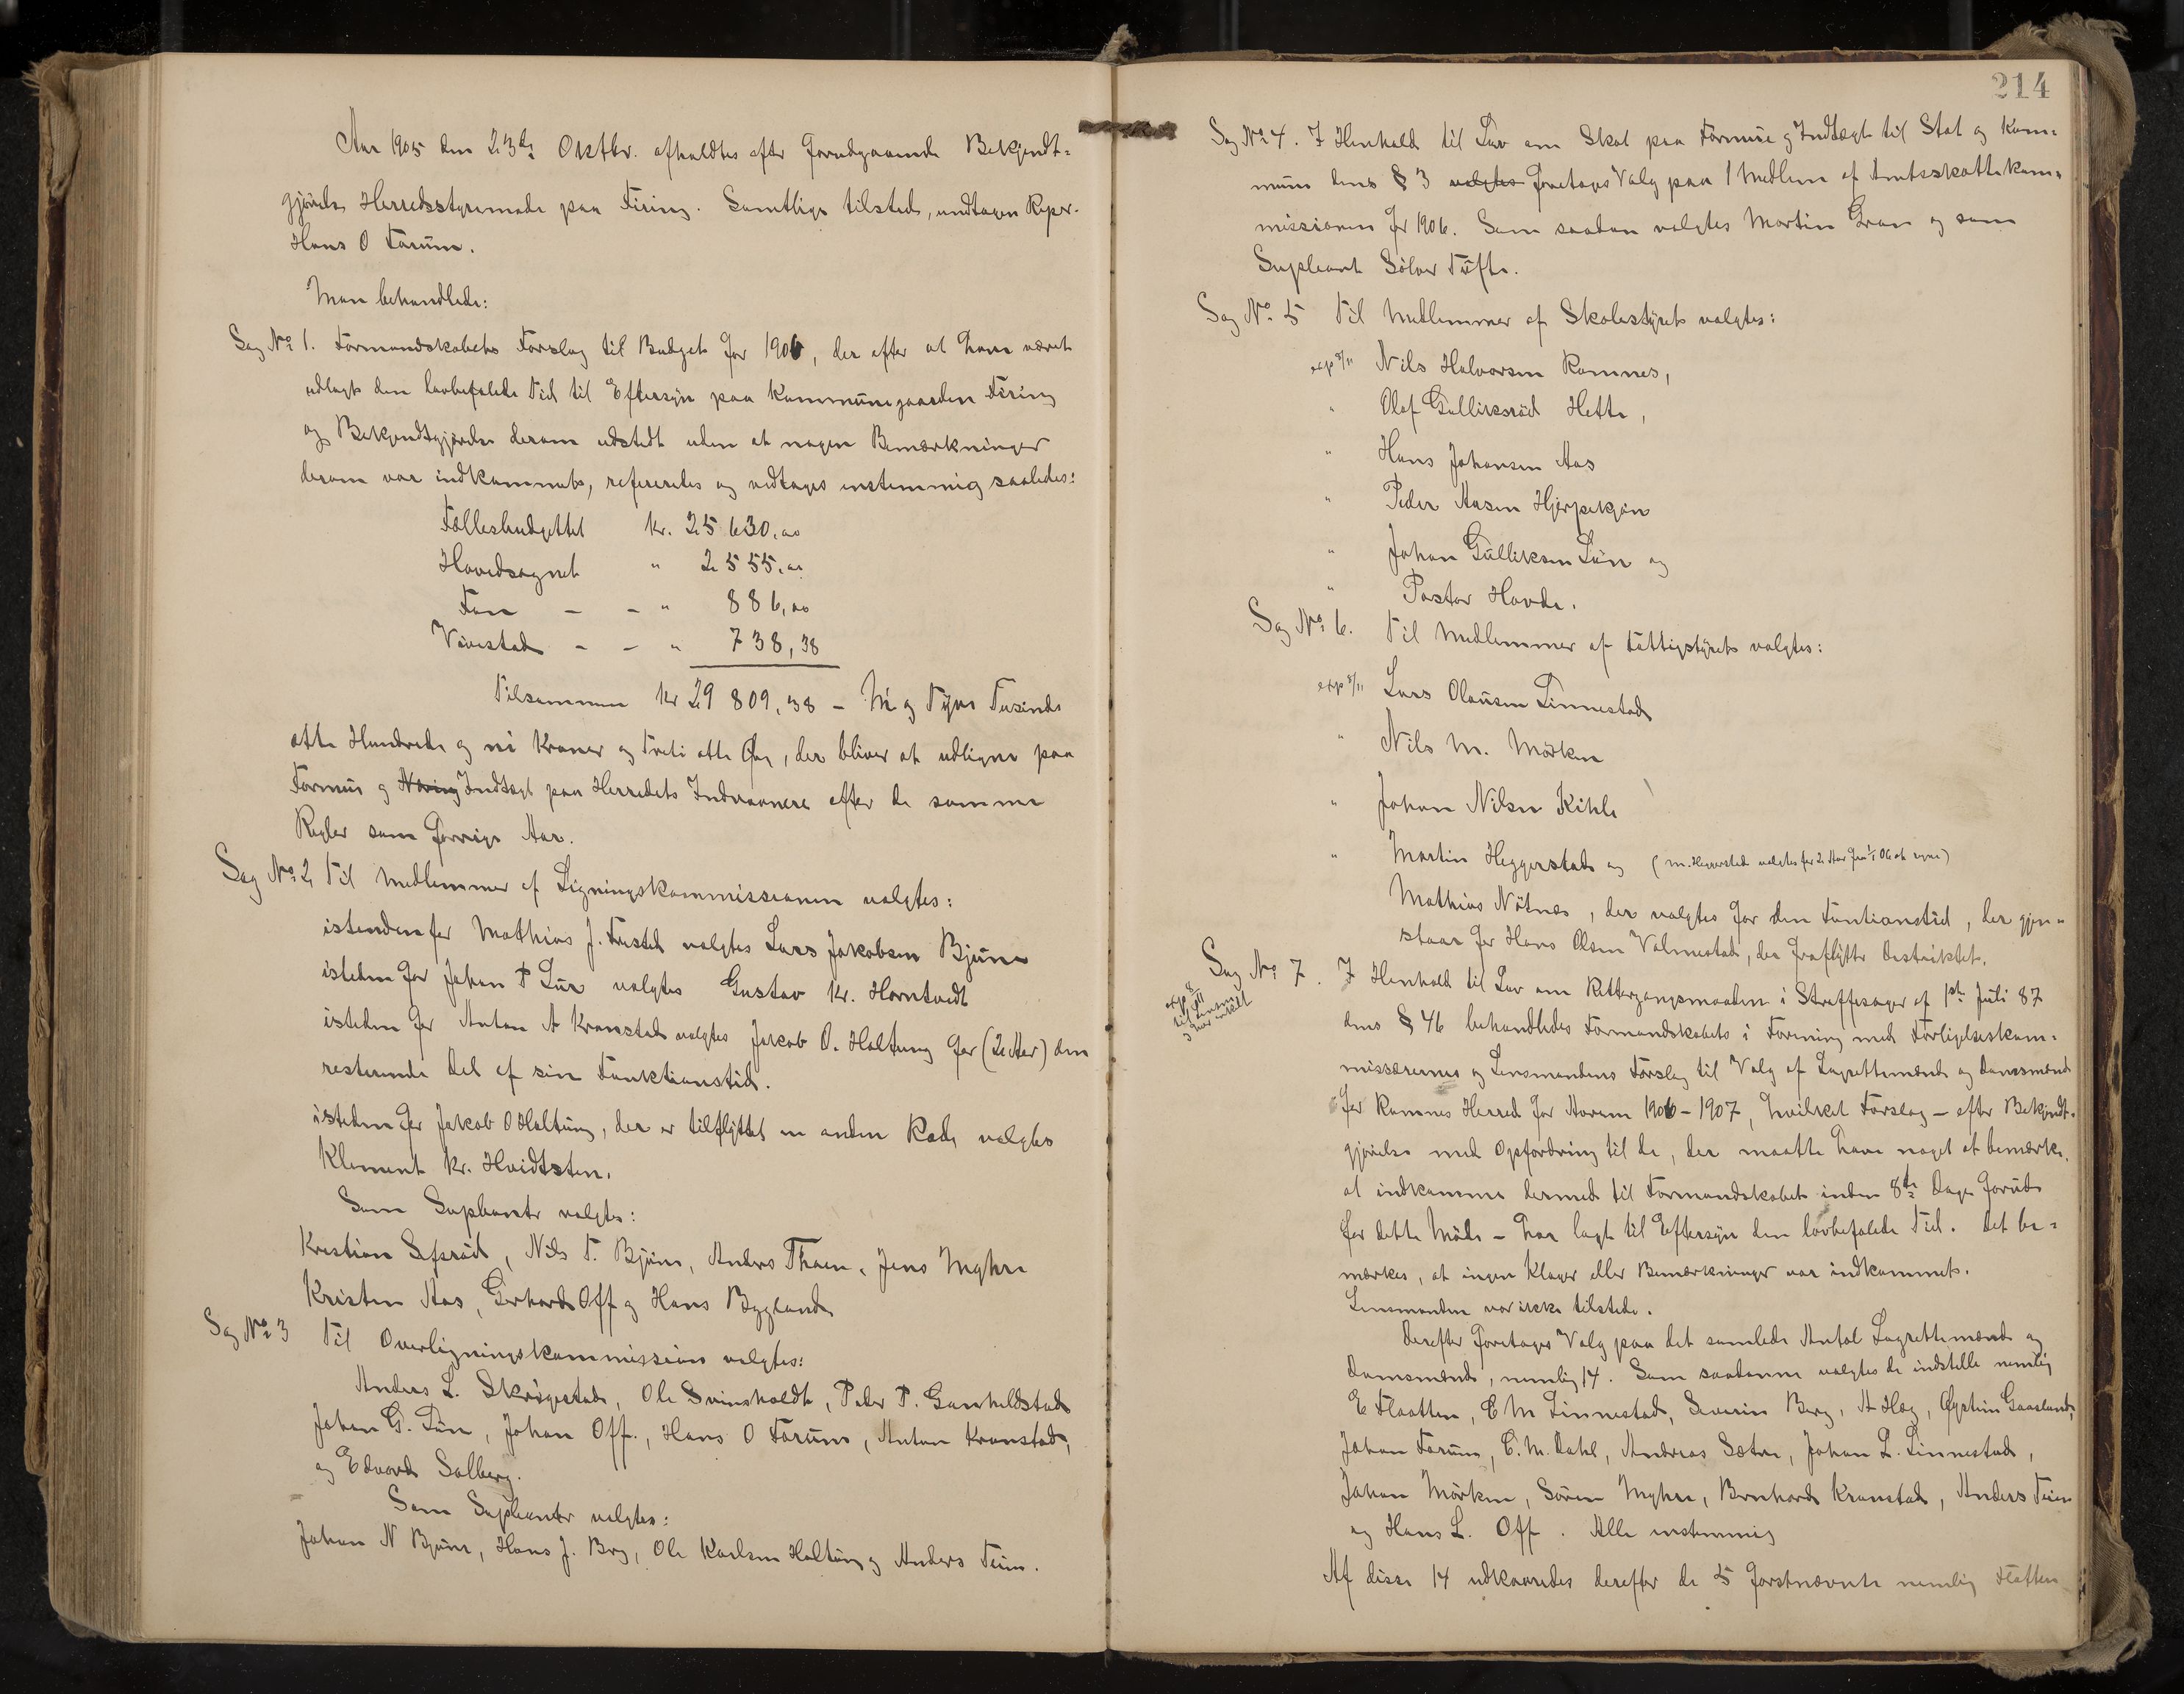 Aar 1905 den 23de Oktbr. afholdtes efter forudgaaende Bekjendt-
gjørelse Herredsstyremøde paa Firing. Samtlige tilstede, undtagen Repr.
Hans O Farüm.
Man behandlede:
Sag No 1. Formandskabets Forslag til Budget for 1906, der efter at have været
udlagt den lovbefalede Tid til Eftersyn paa Kommunegaarden Firing
og Bekjendtgjørelse derom udstedt uden at nogen Bemærkninger
derom var indkommet, refereretes og vedtoges enstemmig saaledes:
Fællesbudgettet kr. 25 630,00
Hovedsognet " 2 555,00
Fon - - " 886,00
Vivestad - - " 738,38
Tilsammen Kr 29 809,38 - Ni og Tyve Tusinde
otte Hundrede og ni Kroner og Treti otte Øre, der bliver at udligne paa
Formue og Næring Indtægt paa Herredets Indvaanere efter de samme
Regler som forrige Aar.
Sag No 2 Til Medlemmer af Ligningskommissionen valgtes:
istedenfor Mathias J. Trested valgtes Lars Jakobsen Bjüne
isteden for Johan P Lür valgtes Gustav Kr. Horntvedt
isteden for Anton A Kronstad valgtes Jakob O. Holtung for (2 Aar) den
resterende Del af sin Funktionstid.
isteden for Jakob O Holtüng, der er tilflyttet en anden Rode valgtes
Klement Kr. Hvidtsten.
Som Supleanter valgtes:
Kristian Sefsröd, Nils T. Bjüne, Anders Thoen, Jens Myhre
Kristen Aas, Gerhard Off og Hans Bygland
Sag No 3 Til Overligningskommission valgtes:
Anders L. Skrigestad, Ole Svinsholdt, Peder P. Gunhildstad
Johan G. Lün, Johan Off., Hans O Farüm, Anton Kronstad,
og Edvard Solberg.
Som Supleanter valgtes:
Johan N Bjüne, Hans J. Brg, Ole Karlsen Holtüng og Anders Teien.
214
Sag No 4. I Henhold til Lov om Skat paa Formue og Indtægt til Stat og Kom-
mune dens § 3 valgtes foretoges Valg paa 1 Medlem af Amtsskattekom-
missionen for 1906. Som saadan valgtes Martin Gran og som
Supleant Sölver Tüfte.
Sag No 5 Til Medlemmer af Skolestyret valgtes:
exp 8/11 Nils Halvorsen Ramnes,
" Olaf Gulliksröd Hette,
" Hans Johansen Aas
" Peder Aasen Hjerpekjøn
" Johan Gülliksen Lün og
" Pastor Hovde.
Sag No 6. Til Medlemmer af Fattigstyret valgtes:
exp 8/11 Lars Olausen Linnestad
" Nils M. Mörken
" Johan Nilsen Kihle
" Martin Heggerstad og (M. Heggerstad valgtes for 2 Aar fra 1/1 06 at regne)
Mathias Nötnes, der valgtes for den Funtionstid, der gjen-
staar for Hans Olsen Volmestad, der fraflytter Destriktet.
Sag No 7. I Henhold til Lov om Rettergangsmaaden i Straffesager af 1ste Juli 87
exp 8/11 til Lensm.
dens § 46 behandledes Formandskabets i Forening med Forligelseskom-
missærernes og Lensmandens Forslag til Valg af Lagrettemænd og Domsmænd
for Ramnes Herred for Aarene 1906-1907, hvilket Forslag - efter Bekjendt-
gjørelse med Opfordring til de, der maatte have noget at bemærke,
at indkomme dermed til Formandskabet inden 8te Dage forud
for dette Möde - har lagt til Eftersyn den lovbefalede Tid. Det be-
mærkes, at ingen Klager eller Bemærkninger var indkommet.
Lensmanden var ikke tilstede.
Derefter foretoges Valg paa det samlede Antal Lagrettemænd og
Domsmænd, nemlig 14. Som saadanne valgtes de indstille nemlig
E Flaatten, E M Linnestad, Severin Berg, A Hæg, Øystein Gaasland,
Johan Farüm, C. M. Dahl, Andreas Sætre, Johan L. Linnestad,
Johan Mörken, Sören Myhre, Bernhard Kronstad, Anders Teien
og Hans L. Off. Alle enstemmig
Af disse 14 udkaaredes derefter de 5 forstnævnte nemlig Flatten